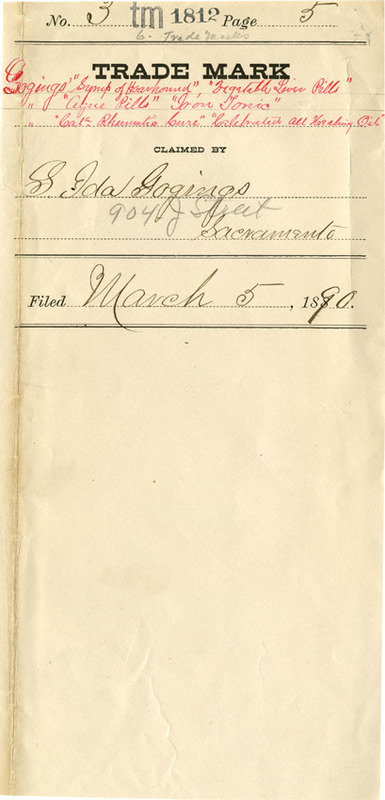 No. 3 tm 1812 Page 5
6. Trade Marks
TRADE MARK
Gogings' "Syrup of Hoarhound", "Vegetable Liver Pills"
" "Ague Pills" "Iron Tonic"
" "Cala Rheumatic Cure" "Celebrated All Healing Oil"
CLAIMED BY
S Ida Gogings
904 J Street
Sacramento
Filed March 5, 1890.